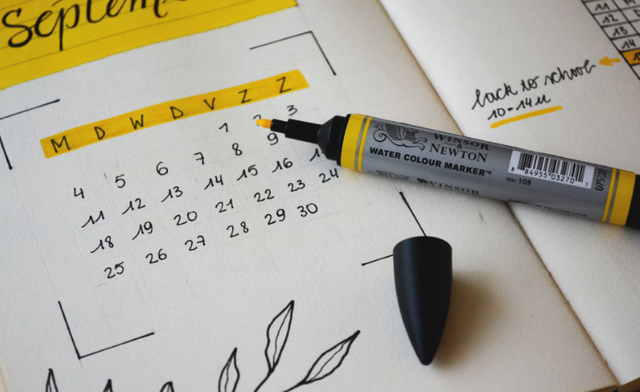 Septem
M D W D V Z Z
1 2 3
4 5 6 7 8 9
11 12 13 14 15 16 1
18 19 20 21 22 23 24
25 26 27 28 29 30
back to school
10-14u
WINSOR
& NEWTON
WATER COLOUR MARKER™
WINSOR
109
8 84955 03270 1
12
13
14